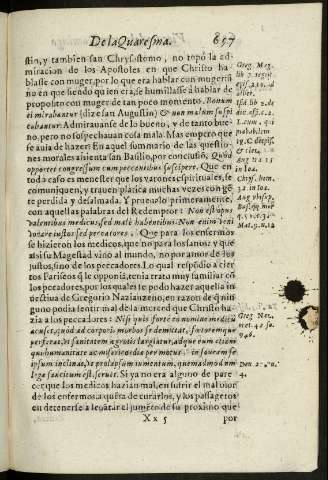 De la Quaresma. 857
stin, y tambien san Chrysostomo, no topò la ad-
miracion de los Apostoles en que Christo ha-
blasse con muger, por lo que era hablar con muger si
no en que siendo quien era, se humillasse à hablar de
proposito con muger de tan poco momento. Bonum
di mirabantur (dize san Augustin) & non malum suspi
cabantur. Admirauanse de lo bueno, y de tanto bue-
no, pero no sospechauan cosa mala. Mas empero que
se aula de hazer? En aquel summario de las questio-
nes morales assienta san Basilio, por conclusiō, Quòd
opporteet congressum cum peccantibus suscipere. Que en
todo caso es menester que los varones espirituales, se
comuniquen, y trauen platica muchas vezes con gē
te perdida y desalmada. Y prueualo primeramente,
con aquellas palabras del Redemptor: Non est opus
valentibus medicus, sed male habentibus. Non enim veni
vocare iustos sed peccatores. Que para los enfermos
se hizieron los medicos, que no para los sanos: y que
assi su Magestad vino al mundo, no por amor de los
justos, sino de los peccadores. Lo qual respōdio a cier
tos Fariseos q̄ le opponiā, tenia trato muy familiar cō
los peccadores, por los quales te podo hazer aquella in
uectiua de Gregorio Nazianzeno, en razon de q̄ nin
guno podia sentir mal de la merced que Christo ha-
zia a los peccadores: Nisi quis fortè eo nomine medicū
accuset, quòd ad corporis morbos se demittat, fœtoremque
perferat, vt sanitatem ægrotis largiatur, adque eum etiam
qui humanitate ac misericordia permotus, in foueam se
ipsum inclinat, vt prolapsum iumentum, quemadmodum
lege sancicum est, seruet. Si ya no era alguno de pare
cer que los medicos hazian mal, en sufrir el mal olor
de los enfermos, a questa de curarlos, y los passageros
en detenerse a leuātar el jumēto de su proximo que
Xx 5 por
Greg. Mag.
August. tra 15
in loa.
Chrys. hom.
in loa.
Mat. 9. n. 12
Greg. Naz.
4.